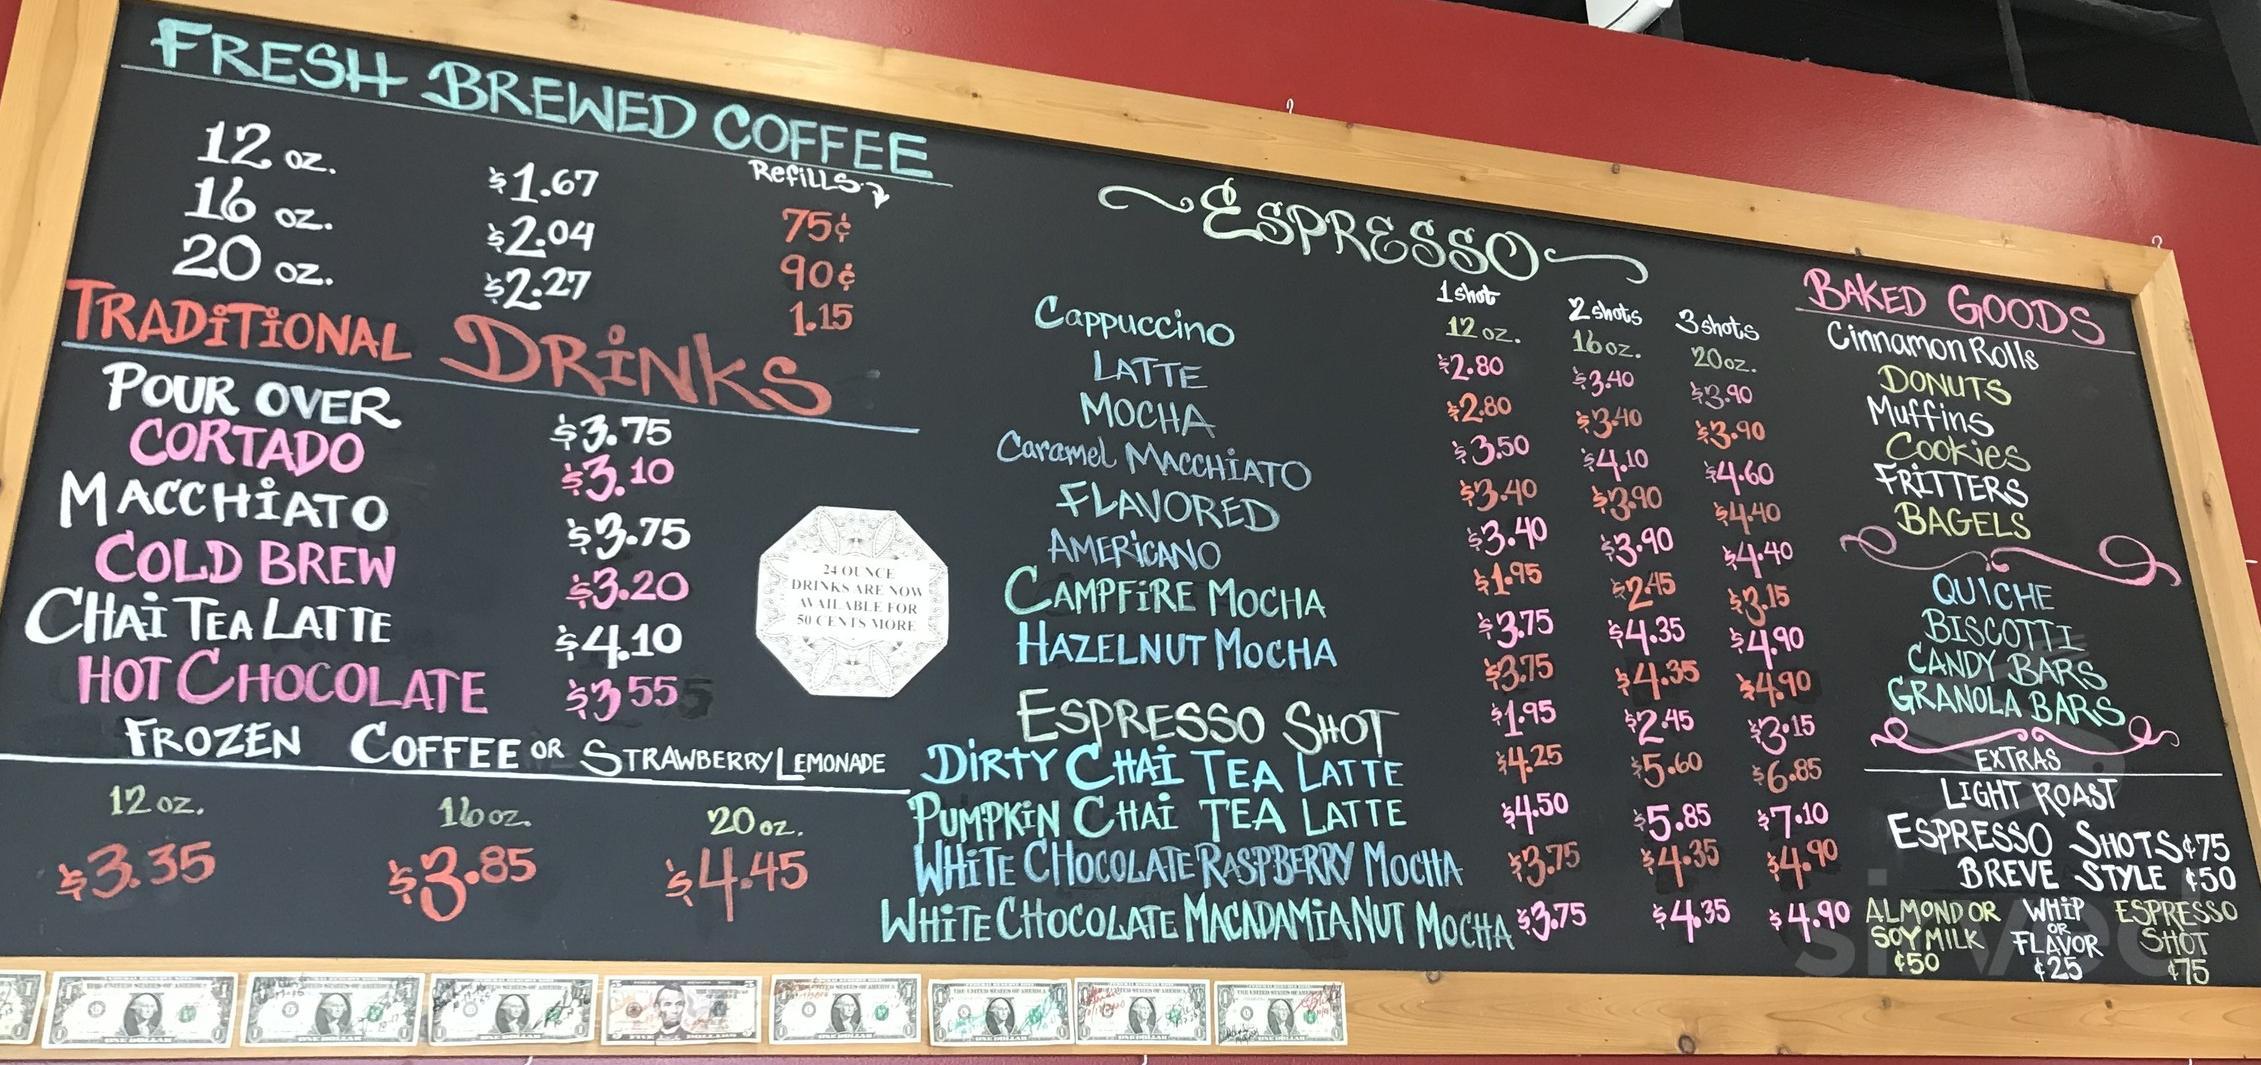 FRESH BREWED COFFEE
Refills
12 oz. $1.67 75¢
16 oz. $2.04 90¢
20 oz. $2.27 1.15
TRADITIONAL DRINKS
POUR OVER $3.75
CORTADO $3.10
MACCHIATO $3.75
COLD BREW $3.20
CHAI TEA LATTE $4.10
HOT CHOCOLATE $3.55
24 OUNCE
DRINKS ARE NOW
AVAILABLE FOR
50 CENTS MORE
FROZEN COFFEE OR STRAWBERRY LEMONADE
12 oz. 16 oz. 20 oz.
$3.35 $3.85 $4.45
ESPRESSO
1 shot 2 shots 3 shots
12 oz. 16 oz. 20 oz.
Cappuccino $2.80 $3.40 $3.90
LATTE $2.80 $3.40 $3.90
MOCHA $3.50 $4.10 $4.60
Caramel MACCHIATO $3.40 $3.90 $4.40
FLAVORED $3.40 $3.90 $4.40
AMERICANO $1.95 $2.45 $3.15
CAMPFIRE MOCHA $3.75 $4.35 $4.90
HAZELNUT MOCHA $3.75 $4.35 $4.90
ESPRESSO SHOT $1.95 $2.45 $3.15
DIRTY CHAI TEA LATTE $4.25 $5.60 $6.85
PUMPKIN CHAI TEA LATTE $4.50 $5.85 $7.10
WHITE CHOCOLATE RASPBERRY MOCHA $3.75 $4.35 $4.90
WHITE CHOCOLATE MACADAMIA NUT MOCHA $3.75 $4.35 $4.90
BAKED GOODS
Cinnamon Rolls
DONUTS
Muffins
Cookies
FRITTERS
BAGELS
QUICHE
BISCOTTI
CANDY BARS
GRANOLA BARS
EXTRAS
LIGHT ROAST
ESPRESSO SHOTS ¢75
BREVE STYLE ¢50
ALMOND OR SOY MILK ¢50
WHIP OR FLAVOR ¢25
ESPRESSO SHOT ¢75
sirved